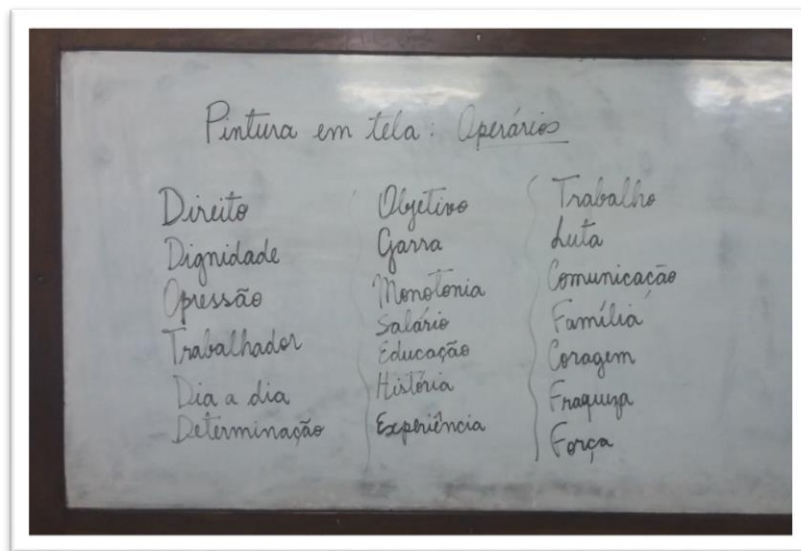 Pintura em tela: Operários
Direito
Dignidade
Opressão
Trabalhador
Dia a dia
Determinação
Objetivo
Garra
Monotonia
Salário
Educação
História
Experiência
Trabalho
Luta
Comunicação
Família
Coragem
Fraqueza
Força